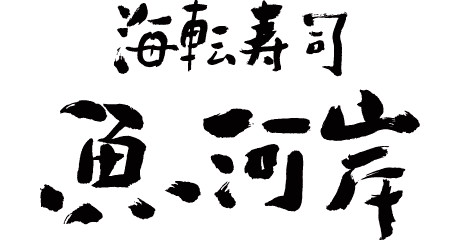 海転寿司
魚河岸